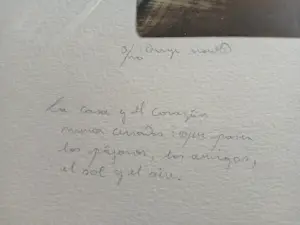 La casa y el corazón
nunca cerrados que pasen
los pájaros, los amigos,
el sol y el aire.